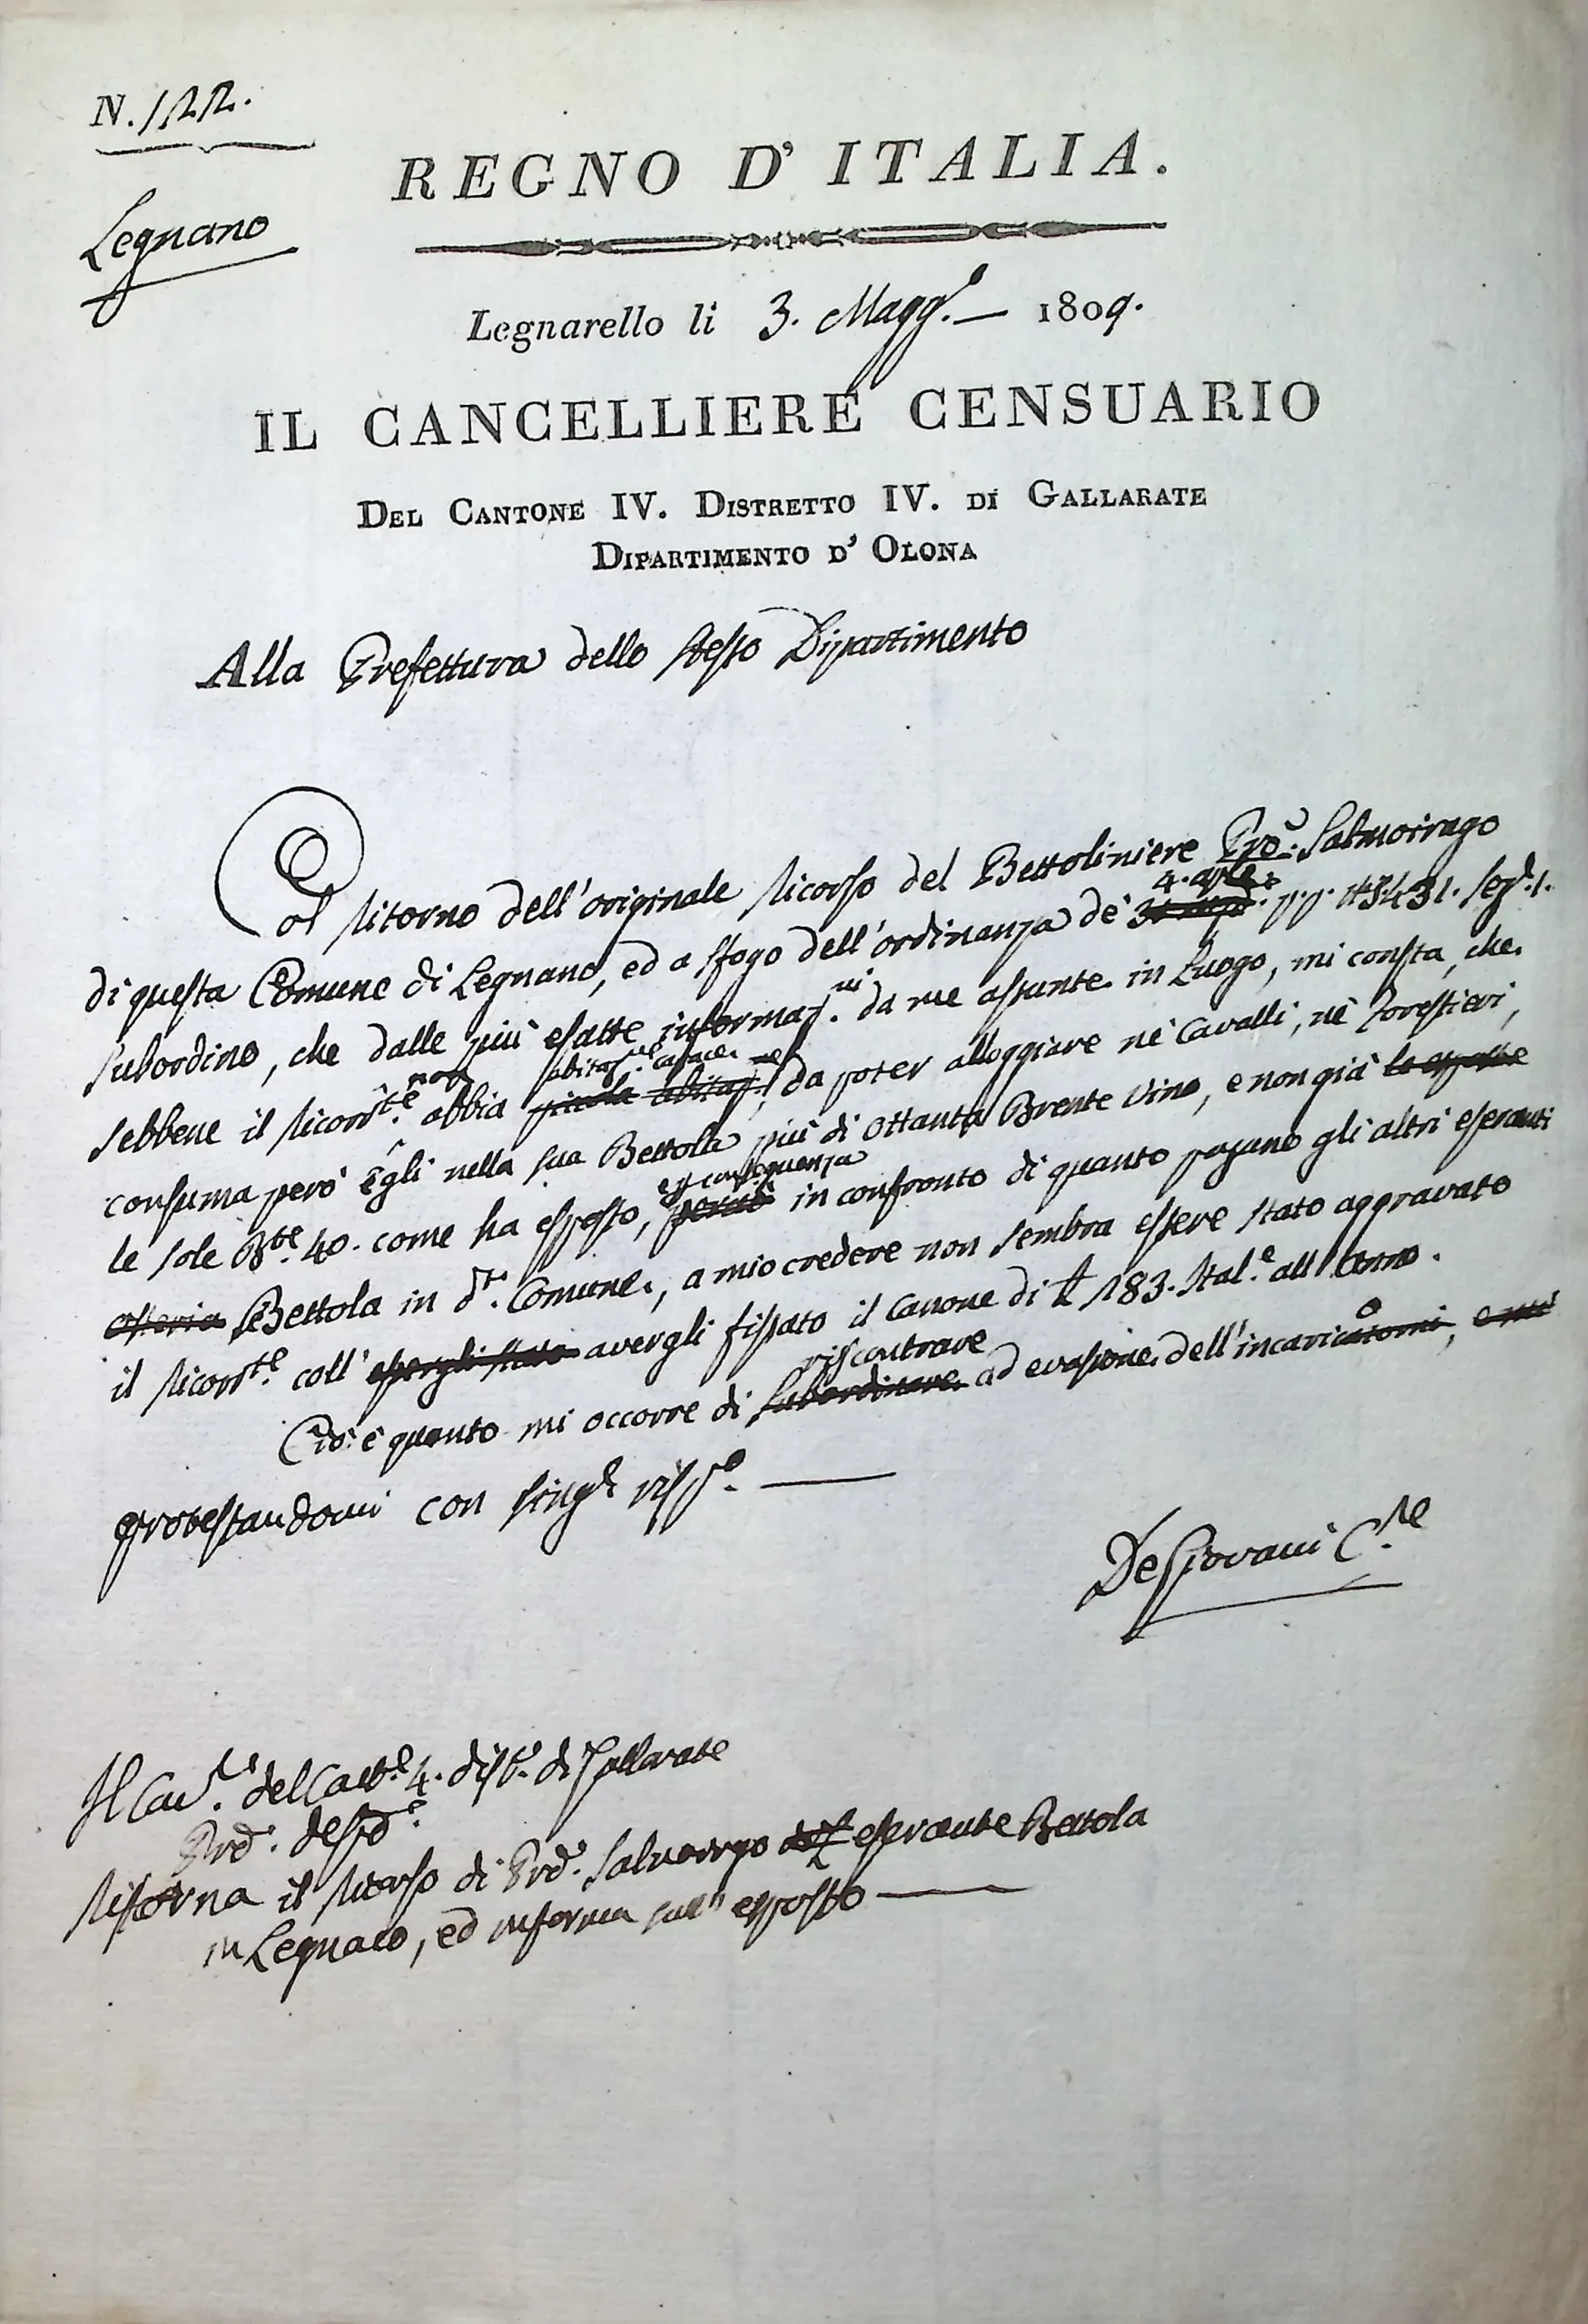 N. 122.
Legnano
REGNO D' ITALIA.
Legnarello li 3. Magg.o — 1809.
IL CANCELLIERE CENSUARIO
DEL CANTONE IV. DISTRETTO IV. DI GALLARATE
DIPARTIMENTO D' OLONA
Alla Prefettura dello stesso Dipartimento
Col ritorno dell'originale ricorso del Bettoliniere Pro. Salmoirago
4. aple
di questa Comune di Legnano, ed a sfogo dell'ordinanza de' p.p. N. 5431. Sez. 1.
subordino, che dalle più esatte informaz.ni da me assunte in Luogo, mi consta, che
non abitaz.ne capace
sebbene il ricorr.te abbia piccola abitaz.ne, da poter alloggiare nè Cavalli, nè Forestieri,
consuma però Egli nella sua Bettola più di ottanta Brente vino, e non già le esposte
per conseguenza
le sole B.te 40. come ha esposto, perciò in confronto di quanto pagano gli altri esercenti
osteria Bettola in d.a Comune, a mio credere non sembra essere stato aggravato
il ricorr.te coll' essergli stato avergli fissato il Canone di £ 183. Ital.e all'Anno.
riscontrare
Ciò è quanto mi occorre di subordinare ad evasione dell'incaricatomi, e mi
protestandomi con sing.e risp.o —
DeGiovanni C.re
Il Can.re del Cant.e 4. dist.o di Gallarate
Ritorna il ricorso di Pro. Salmoirago esercente Bettola
in Legnano, ed informa sull' esposto —